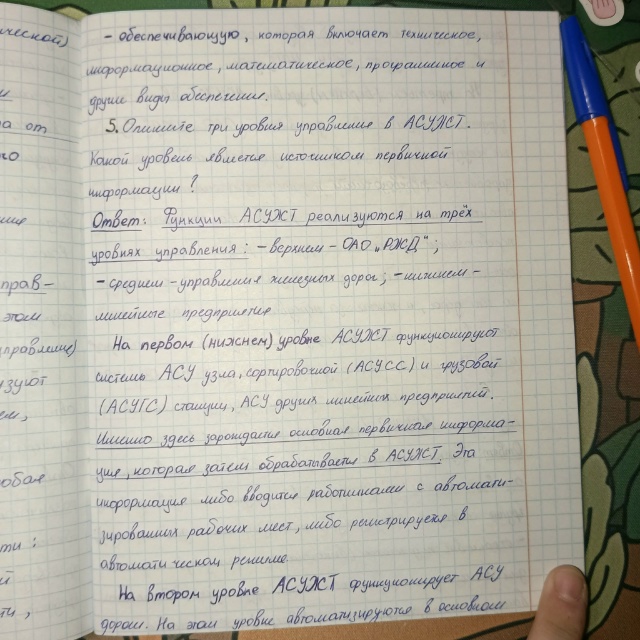 ческой)
а от
 го
прав-
этом
управление)
зуют
ем,
собая
сти:
й
ти,
- обеспечивающую, которая включает техническое,
информационное, математическое, программное и
другие виды обеспечение.
5. Опишите три уровня управление в АСУЖТ.
Какой уровень является источником первичной
информации?
Ответ: Функции АСУЖТ реализуются на трёх
уровнях управления: - верхнем - ОАО „РЖД";
- среднем - управления железных дорог; - нижнем -
линейные предприятие
На первом (нижнем) уровне АСУЖТ функционируют
системы АСУ узла, сортировочной (АСУСС) и грузовой
(АСУГС) станции, АСУ других линейных предприятий.
Именно здесь зарождается основная первичная информа-
ция, которая затем обрабатывается в АСУЖТ. Эта
информация либо вводится работниками с автомати-
зированных рабочих мест, либо регистрируется в
автоматическом режиме.
На втором уровне АСУЖТ функционирует АСУ
дорог. На этом уровне автоматизируются в основном